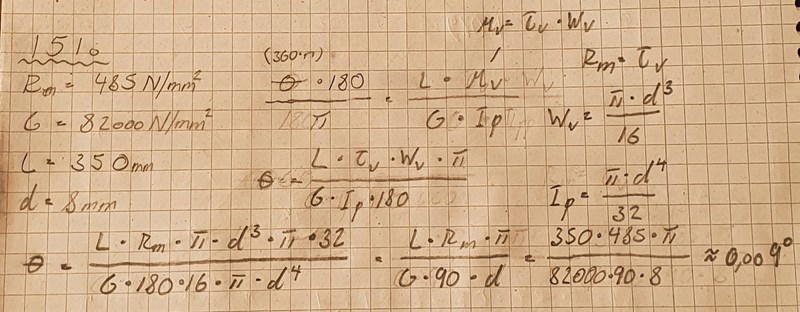 Mv = τv · Wv
1510
Rm = 485 N/mm²
G = 82000 N/mm²
L = 350 mm
d = 8 mm
(360·n)
θ · 180 / π = L · Mv / G · Ip
Rm = τv
Wv = π · d³ / 16
θ = L · τv · Wv · π / G · Ip · 180
Ip = π · d⁴ / 32
θ = L · Rm · π · d³ · π · 32 / G · 180 · 16 · π · d⁴ = L · Rm · π / G · 90 · d = 350 · 485 · π / 82000 · 90 · 8 ≈ 0,009°